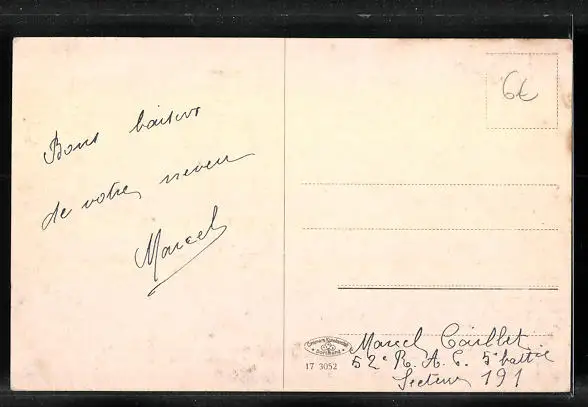 Bons baisers
de votre neveu
Marcel
6€
17 3052
Marcel Caillet
52e R. A. C. 5e battie
Secteur 191